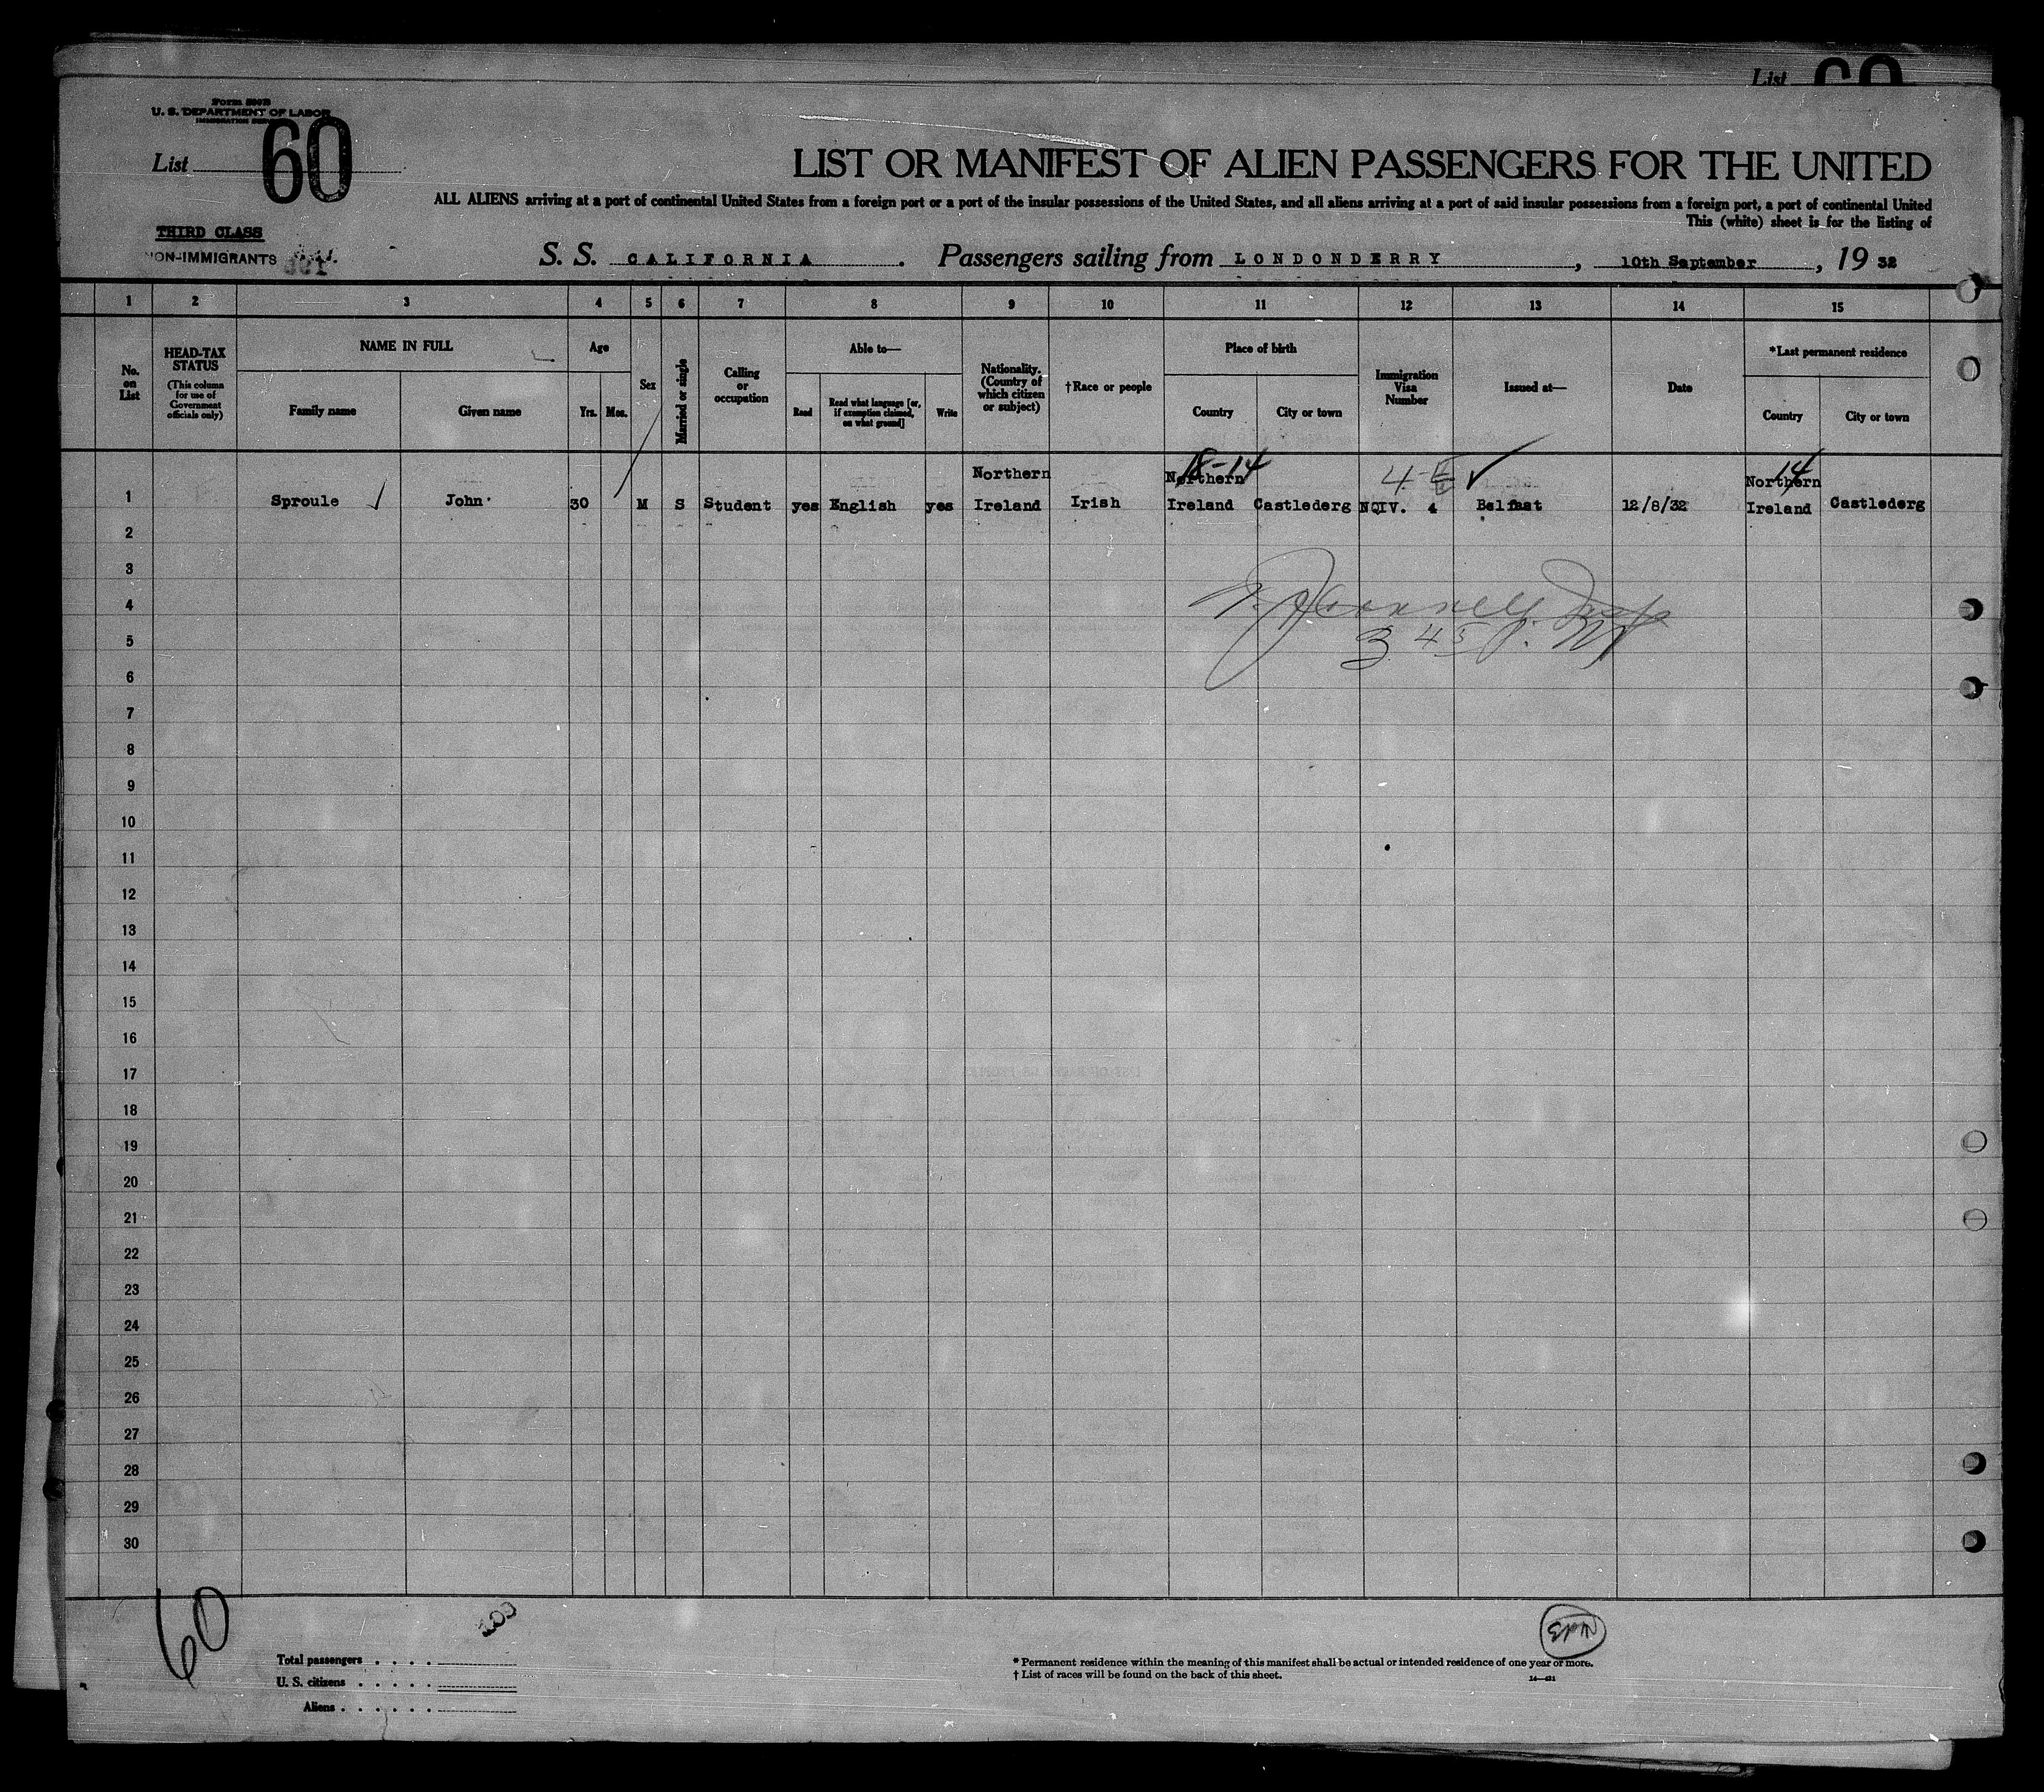 List 60
Form 500B
U. S. DEPARTMENT OF LABOR
IMMIGRATION SERVICE
List 60
LIST OR MANIFEST OF ALIEN PASSENGERS FOR THE UNITED
ALL ALIENS arriving at a port of continental United States from a foreign port or a port of the insular possessions of the United States, and all aliens arriving at a port of said insular possessions from a foreign port, a port of continental United
This (white) sheet is for the listing of
THIRD CLASS
NON-IMMIGRANTS
S. S. CALIFORNIA . Passengers sailing from LONDONDERRY , 10th September , 19 32
1 2 3 4 5 6 7 8 9 10 11 12 13 14 15
No. on List
HEAD-TAX STATUS
(This column for use of Government officials only)
NAME IN FULL
Family name
Given name
Age
Yrs.
Mos.
Sex
Married or single
Calling or occupation
Able to—
Read
Read what language [or, if exemption claimed, on what ground]
Write
Nationality. (Country of which citizen or subject)
†Race or people
Place of birth
Country
City or town
Immigration Visa Number
Issued at—
Date
*Last permanent residence
Country
City or town
18-14
4-E ✓
14
Northern Northern Northern
1 Sproule John 30 M S Student yes English yes Ireland Irish Ireland Castlederg NQIV. 4 Belfast 12/8/32 Ireland Castlederg
2
3
4
5
3 45 P. M
6
7
8
9
10
11
12
13
14
15
16
17
18
19
20
21
22
23
24
25
26
27
28
29
30
60
Total passengers
U. S. citizens
Aliens
* Permanent residence within the meaning of this manifest shall be actual or intended residence of one year or more.
† List of races will be found on the back of this sheet.